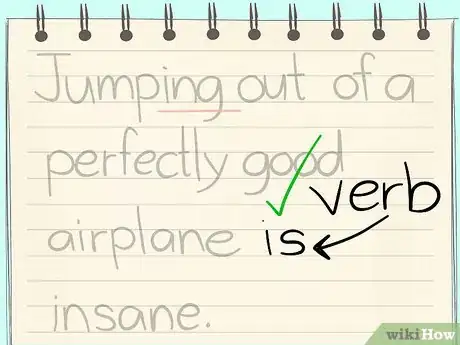 Jumping out of a
perfectly good
verb
airplane is
insane.
wikiHow